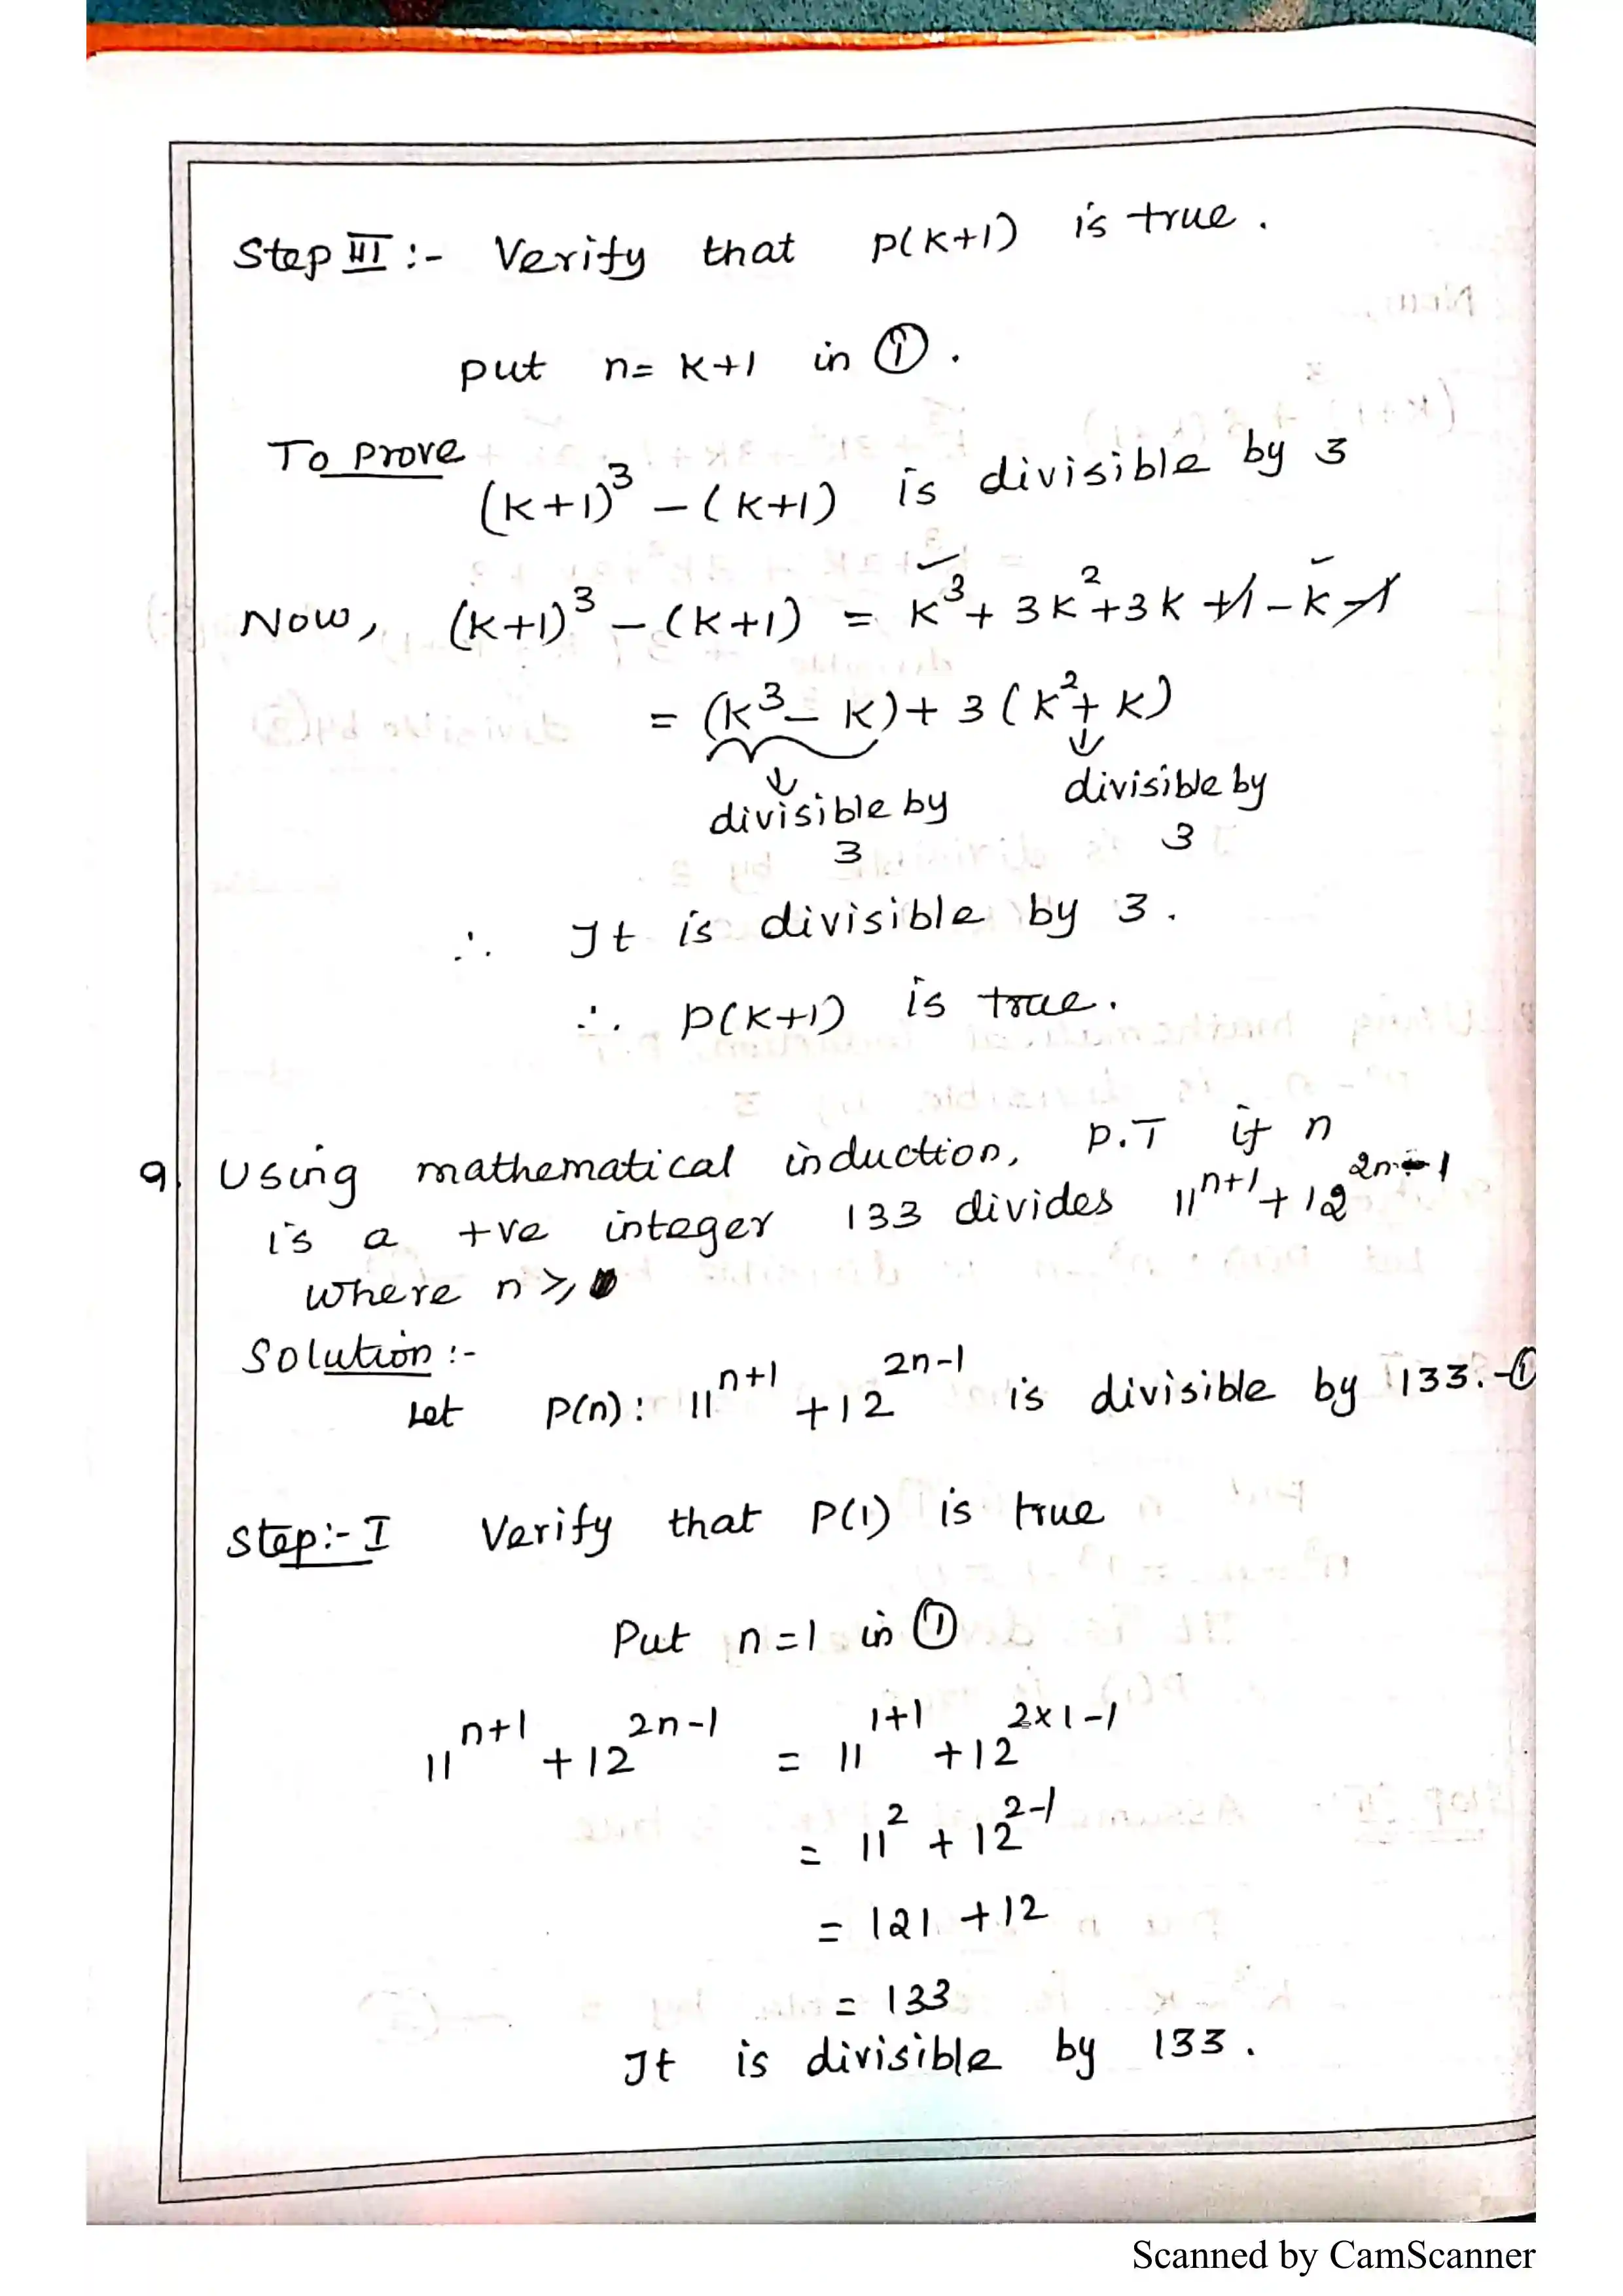 Step III :- Verify that P(K+1) is true.
put n= K+1 in ①.
To prove
(K+1)³ – (K+1) is divisible by 3
Now, (K+1)³ – (K+1) = K³ + 3K² + 3K +1 – K –1
= (K³ – K) + 3 (K² + K)
↓ ↓
divisible by divisible by
3 3
∴ It is divisible by 3.
∴ P(K+1) is true.
9. Using mathematical induction, P.T if n
is a +ve integer 133 divides 11ⁿ⁺¹ + 12²ⁿ⁻¹
where n ≥
Solution :-
Let P(n): 11ⁿ⁺¹ + 12²ⁿ⁻¹ is divisible by 133. -①
Step:- I Verify that P(1) is true
Put n=1 in ①
11ⁿ⁺¹ + 12²ⁿ⁻¹ = 11¹⁺¹ + 12²ˣ¹⁻¹
= 11² + 12²⁻¹
= 121 + 12
= 133
It is divisible by 133.
Scanned by CamScanner